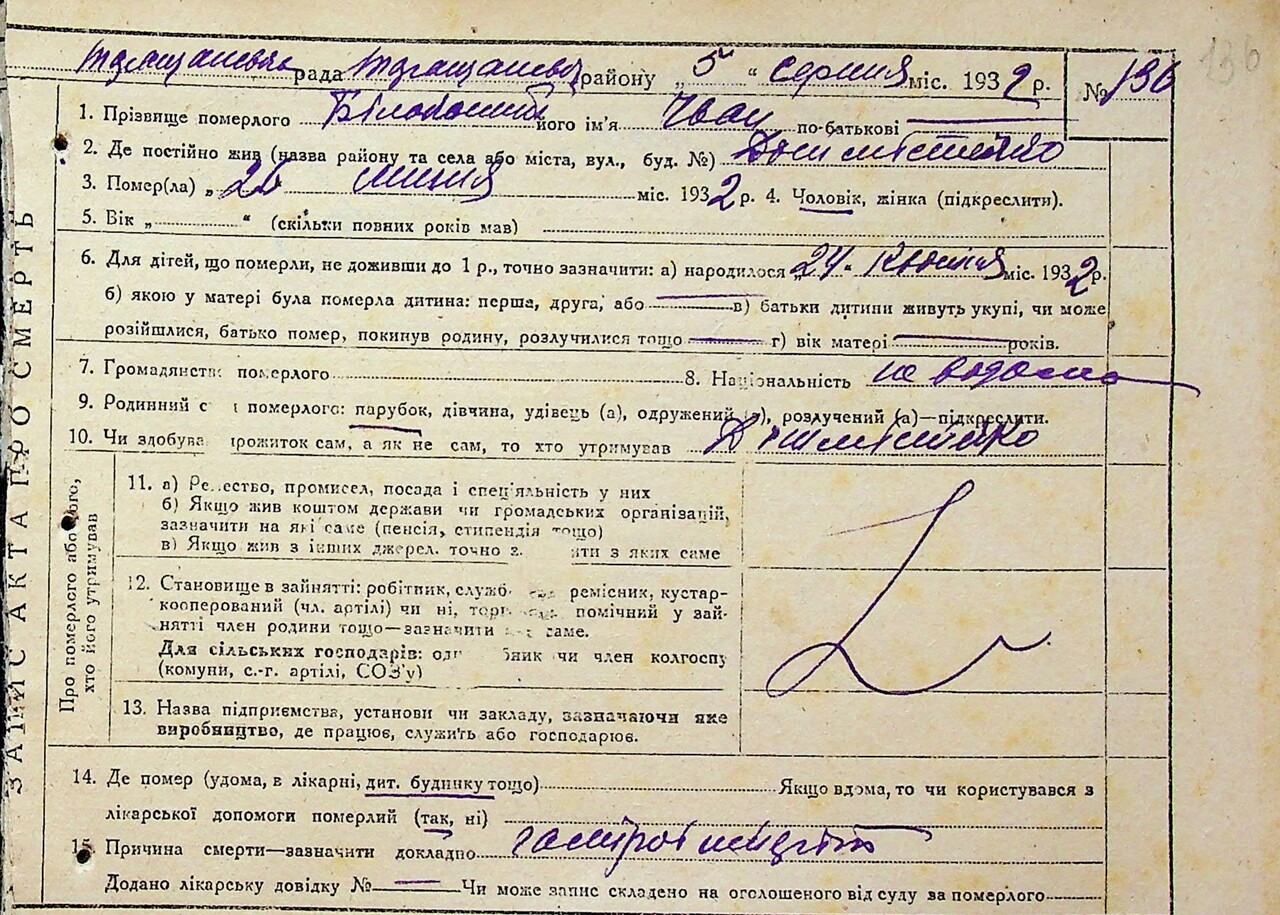 Таращанська рада Таращанськ району „5“ серпня міс. 1932 р. № 136
136
1. Прізвище померлого Білокопий його ім'я Іван по-батькові —
2. Де постійно жив (назва району та села або міста, вул., буд. №) Дит містечко
3. Помер(ла) „26 липня міс. 1932 р. 4. Чоловік, жінка (підкреслити).
5. Вік „ “ (скільки повних років мав)
6. Для дітей, що померли, не доживши до 1 р., точно зазначити: а) народилося „24. міс. 1932 р.
б) якою у матері була померла дитина: перша, друга, або — в) батьки дитини живуть укупі, чи може
розійшлися, батько помер, покинув родину, розлучилися тощо — г) вік матері — років.
7. Громадянств: померлого 8. Національність не
9. Родинний с померлого: парубок, дівчина, удівець (а), одружений (а), розлучений (а)—підкреслити.
10. Чи здобува прожиток сам, а як не сам, то хто утримував Дит містечко
ЗАПИС АКТА ПРО СМЕРТЬ
Про померлого або того,
хто його утримував
11. а) Ре ество, промисел, посада і спец'яльність у них
б) Якщо жив коштом держави чи громадських організацій,
зазначити на які саме (пенсія, стипендія тощо)
в) Якщо жив з інших джерел, точно з ити з яких саме
12. Становище в зайнятті: робітник, служб ремісник, кустар-
кооперований (чл. артілі) чи ні, торг помічний у зай-
нятті член родини тощо—зазначити саме.
Для сільських господарів: одн бник чи член колгоспу
(комуни, с.-г. артілі, СОЗ'у)
13. Назва підприємства, установи чи закладу, зазначаючи яке
виробництво, де працює, служить або господарює.
14. Де помер (удома, в лікарні, дит. будинку тощо) Якщо вдома, то чи користувався з
лікарської допомоги померлий (так, ні)
15. Причина смерти—зазначити докладно
Додано лікарську довідку № — Чи може запис складено на оголошеного від суду за померлого